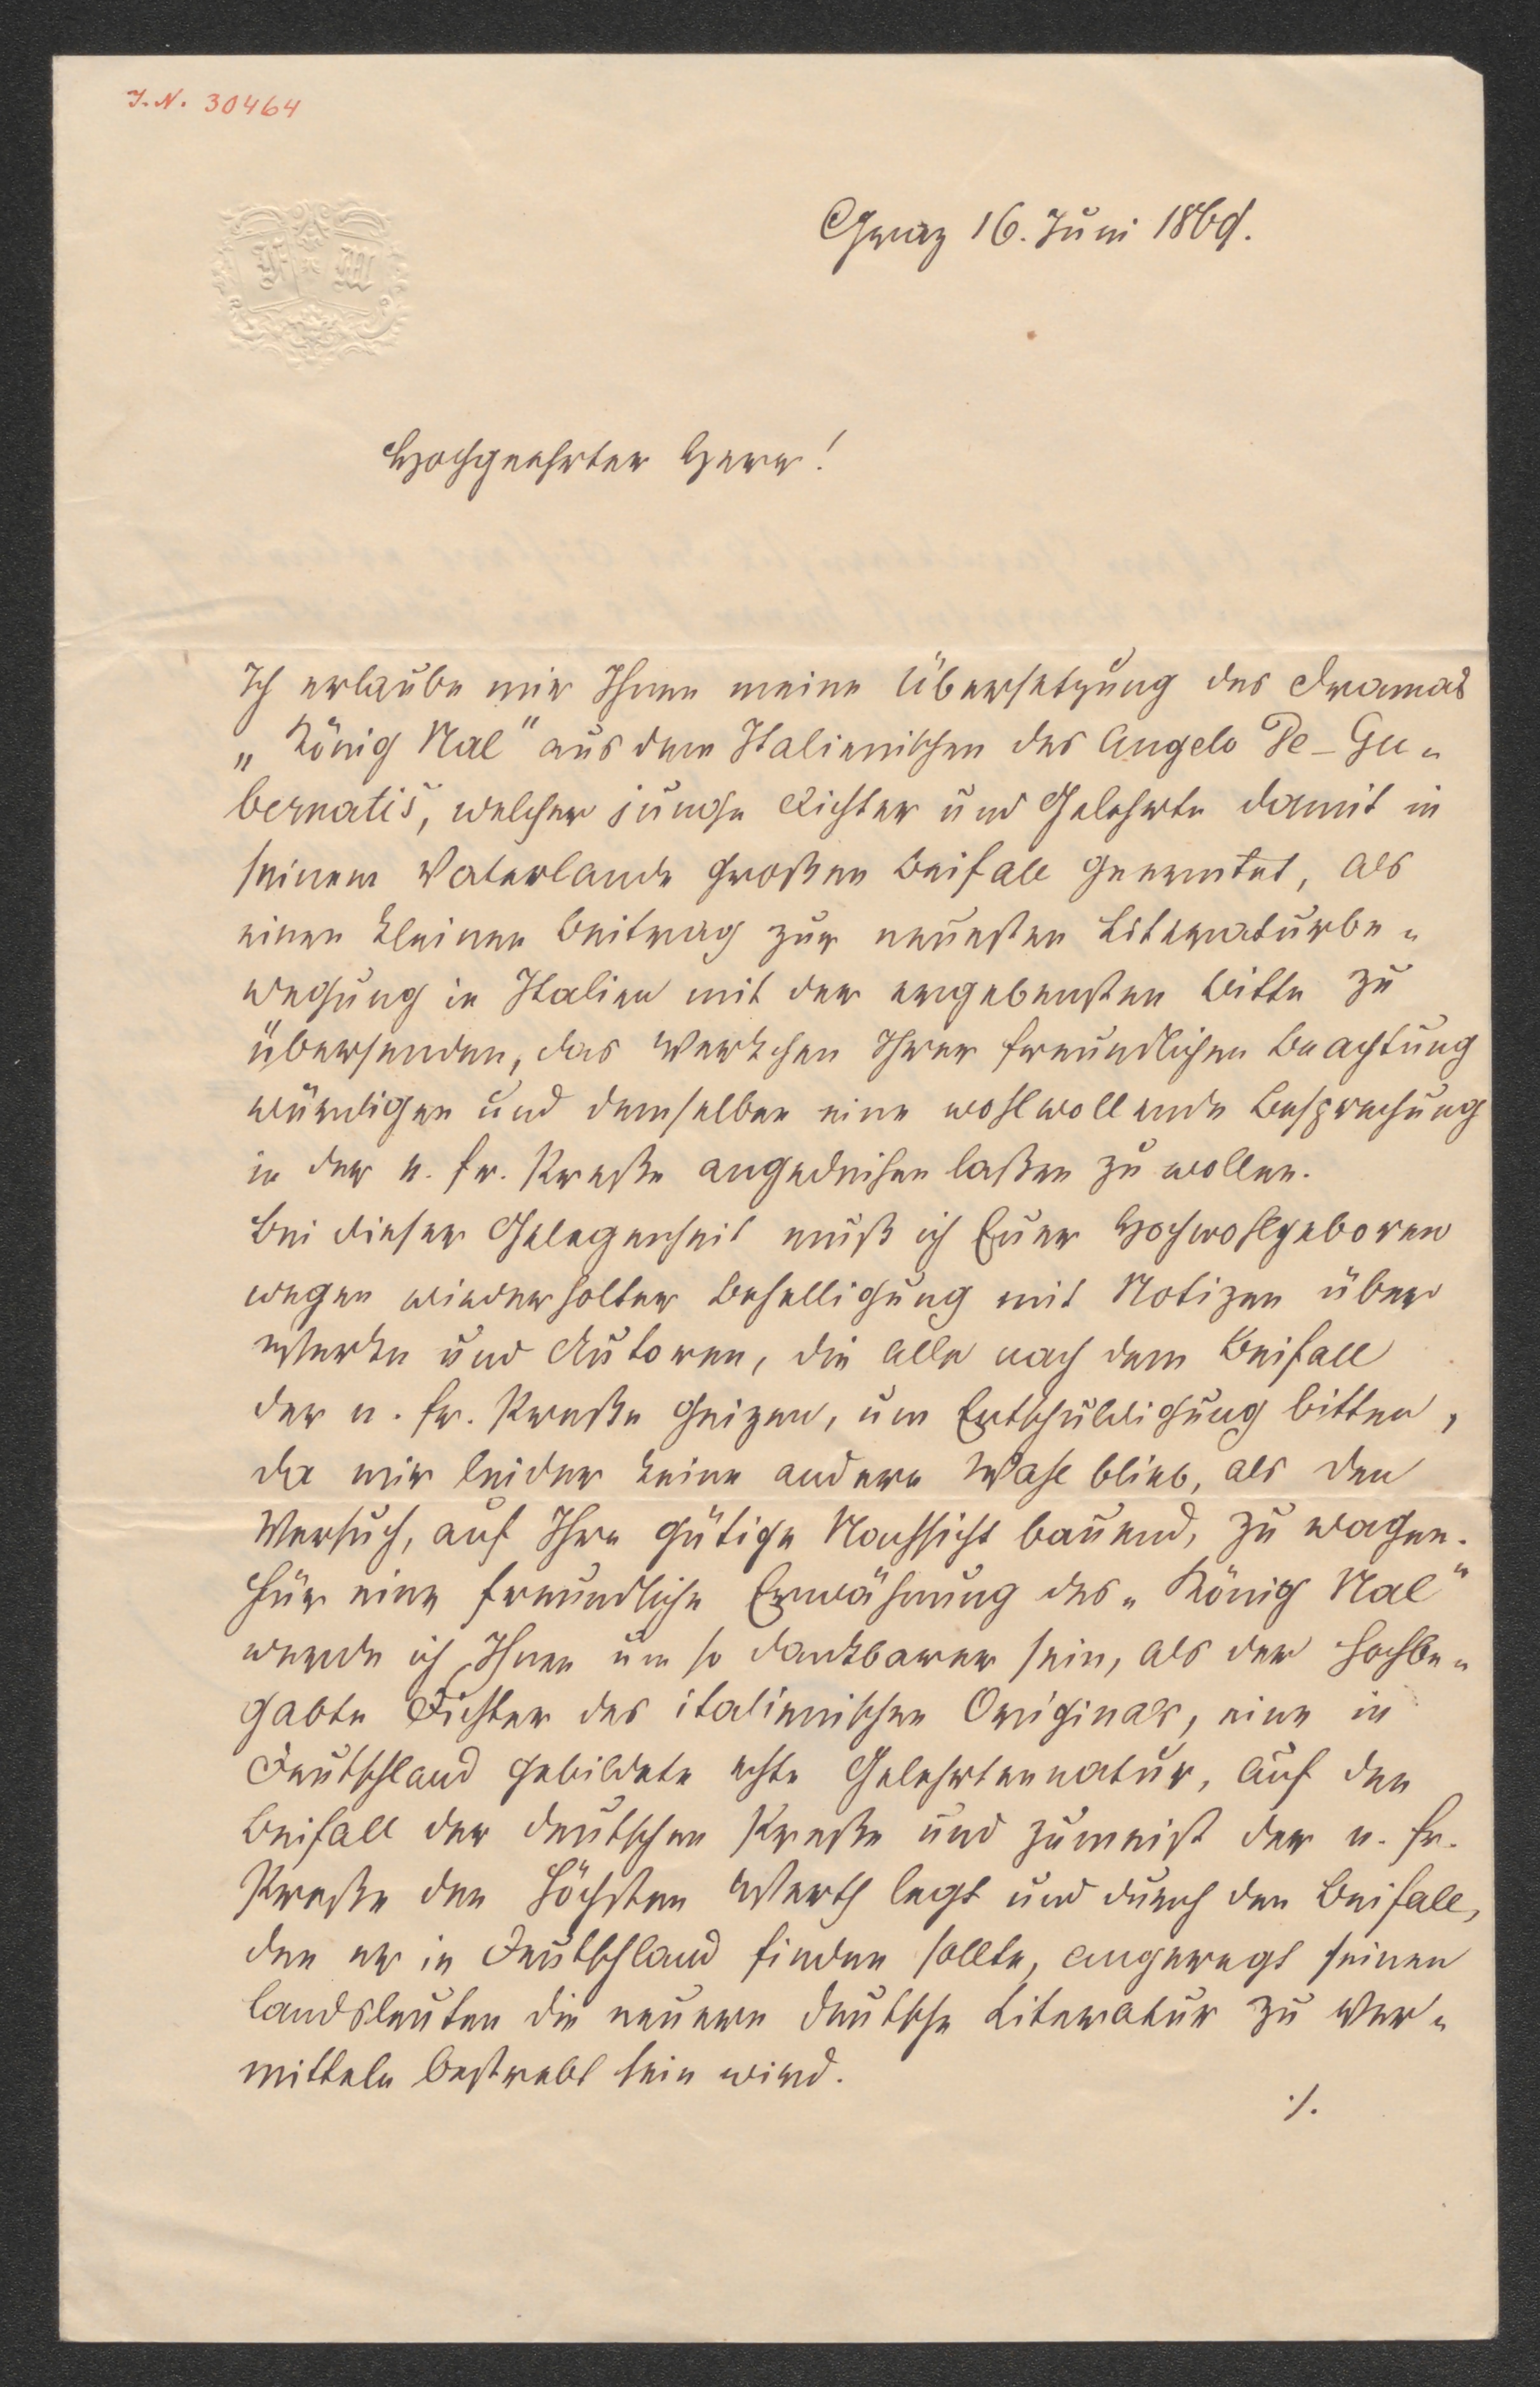 I. N. 30464
F M
Graz 16. Juni 1869.
Hochgeehrter Herr!
Ich erlaube mir Ihnen meine Übersetzung des Dramas
„König Nal" aus dem Italienischen des Angelo De-Gu-
bernatis, welcher junge Dichter und Gelehrte damit in
seinem Vaterlande großen Beifall geerntet, als
einen kleinen Beitrag zur neuesten Literaturbe-
wegung in Italien mit der ergebensten Bitte zu
übersenden, das Werkchen Ihrer freundlichen Beachtung
würdigen und demselben eine wohlwollende Besprechung
in der n. fr. Preße angedeihen laßen zu wollen.
Bei dieser Gelegenheit muß ich Euer Hochwohlgeboren
wegen wiederholter Behelligung mit Notizen über
Werke und Autoren, die alle nach dem Beifall
der n. fr. Preße geizen, um Entschuldigung bitten,
da mir leider keine andere Wahl blieb, als den
Versuch, auf Ihre gütige Nachsicht bauend, zu wagen.
Für eine freundliche Erwähnung des „König Nal"
werde ich Ihnen um so dankbarer sein, als der hochbe-
gabte Dichter des italienischen Originals, eine in
Deutschland gebildete echte Gelehrtennatur, auf den
Beifall der deutschen Preße und zumeist der n. fr.
Preße den höchsten Werth legt und durch den Beifall,
den er in Deutschland finden sollte, angeregt seinen
Landsleuten die neuere deutsche Literatur zu ver-
mitteln bestrebt sein wird.
./.